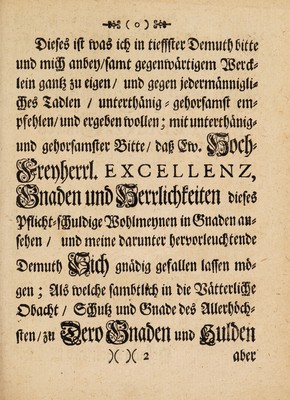 ( o )
Dieses ist was ich in tieffster Demuth bitte
und mich anbey/ samt gegenwärtigem Werck-
lein gantz zu eigen/ und gegen jedermännigli-
ches Tadlen/ unterthänig-gehorsamst em-
pfehlen/ und ergeben wollen; mit unterthänig-
und gehorsamster Bitte/ daß Ew. Hoch-
Freyherrl. EXCELLENZ,
Gnaden und Herrlichkeiten dieses
Pflicht-schuldige Wohlmeynen in Gnaden an-
sehen/ und meine darunter hervorleuchtende
Demuth Sich gnädig gefallen lassen mö-
gen; Als welche sambtlich in die Vätterliche
Obacht/ Schutz und Gnade des Allerhöch-
sten/ zu Dero Gnaden und Hulden
)( )( 2 aber